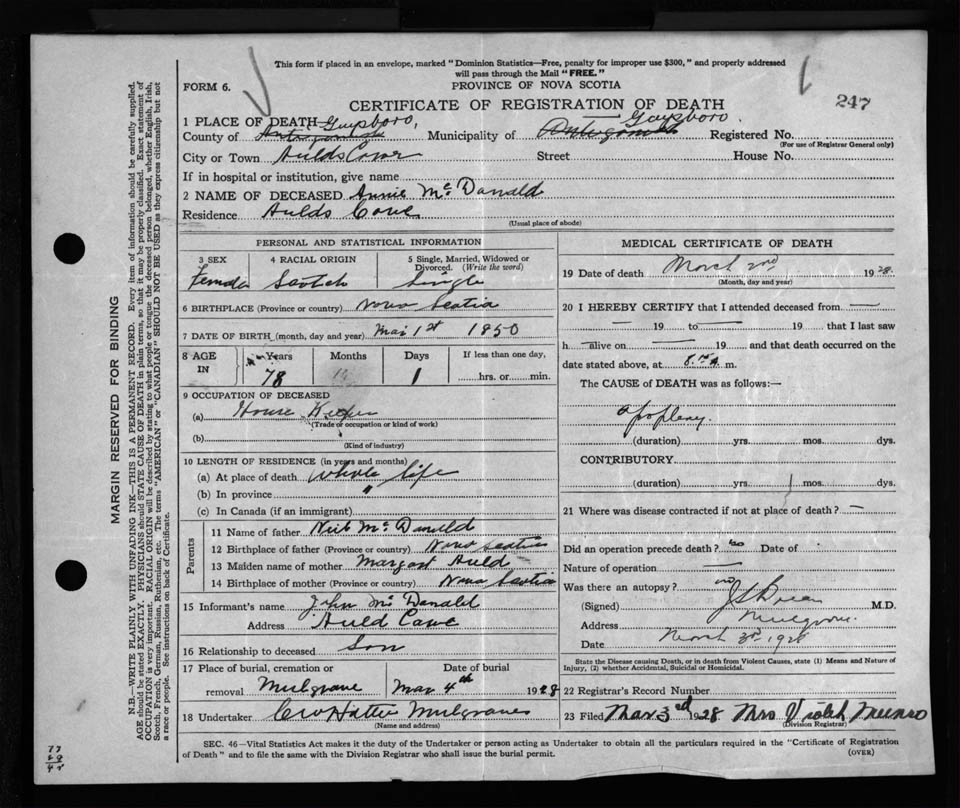 This form if placed in an envelope, marked "Dominion Statistics—Free, penalty for improper use $300," and properly addressed
will pass through the Mail "FREE."
FORM 6.
PROVINCE OF NOVA SCOTIA
CERTIFICATE OF REGISTRATION OF DEATH
247
1 PLACE OF DEATH Guysboro, Guysboro.
County of Antigonish Municipality of Antigonish Registered No.
(For use of Registrar General only)
City or Town Aulds Cove Street House No.
If in hospital or institution, give name
2 NAME OF DECEASED Annie McDonald
Residence Aulds Cove
(Usual place of abode)
PERSONAL AND STATISTICAL INFORMATION
3 SEX 4 RACIAL ORIGIN 5 Single, Married, Widowed or Divorced. (Write the word)
Female Scotch Single
6 BIRTHPLACE (Province or country) Nova Scotia
7 DATE OF BIRTH (month, day and year) Mar 1st 1850
8 AGE IN Years Months Days If less than one day,
78 1 hrs. or min.
9 OCCUPATION OF DECEASED
(a) House Keeper
(Trade or occupation or kind of work)
(b)
(Kind of industry)
10 LENGTH OF RESIDENCE (in years and months)
(a) At place of death whole life
(b) In province "
(c) In Canada (if an immigrant)
Parents
11 Name of father Neil McDonald
12 Birthplace of father (Province or country) Nova Scotia
13 Maiden name of mother Margaret Auld
14 Birthplace of mother (Province or country) Nova Scotia
15 Informant's name John McDonald
Address Auld Cove
16 Relationship to deceased Son
17 Place of burial, cremation or removal Mulgrave Date of burial Mar 4th 1928
18 Undertaker Mulgrave
(Name and address)
MEDICAL CERTIFICATE OF DEATH
19 Date of death March 2nd 1928.
(Month, day and year)
20 I HEREBY CERTIFY that I attended deceased from —
— 19 to — 19 that I last saw
h— alive on — 19 and that death occurred on the
date stated above, at 8. A m.
The CAUSE of DEATH was as follows:—
Apoplexy.
(duration) yrs. mos. dys.
CONTRIBUTORY
(duration) yrs. mos. dys.
21 Where was disease contracted if not at place of death? —
Did an operation precede death? no Date of
Nature of operation —
Was there an autopsy? no
(Signed) M.D.
Address Mulgrave.
Date March 3rd 1928
State the Disease causing Death, or in death from Violent Causes, state (1) Means and Nature of
Injury, (2) whether Accidental, Suicidal or Homicidal.
22 Registrar's Record Number
23 Filed Mar 3rd 1928 Mrs Violet Munro
(Division Registrar)
SEC. 46—Vital Statistics Act makes it the duty of the Undertaker or person acting as Undertaker to obtain all the particulars required in the "Certificate of Registration
of Death" and to file the same with the Division Registrar who shall issue the burial permit.
(OVER)
MARGIN RESERVED FOR BINDING
N.B.—WRITE PLAINLY WITH UNFADING INK—THIS IS A PERMANENT RECORD. Every item of information should be carefully supplied.
AGE should be stated EXACTLY. PHYSICIANS should STATE CAUSE OF DEATH in plain terms, so that it may be properly classified. Exact statement of
OCCUPATION is very important. RACIAL ORIGIN will be described by stating to what people or tongue the deceased person belonged, whether English, Irish,
Scotch, French, German, Russian, Ruthenian, etc. The terms "AMERICAN" or "CANADIAN" SHOULD NOT BE USED as they express citizenship but not
a race or people. See instructions on back of Certificate.